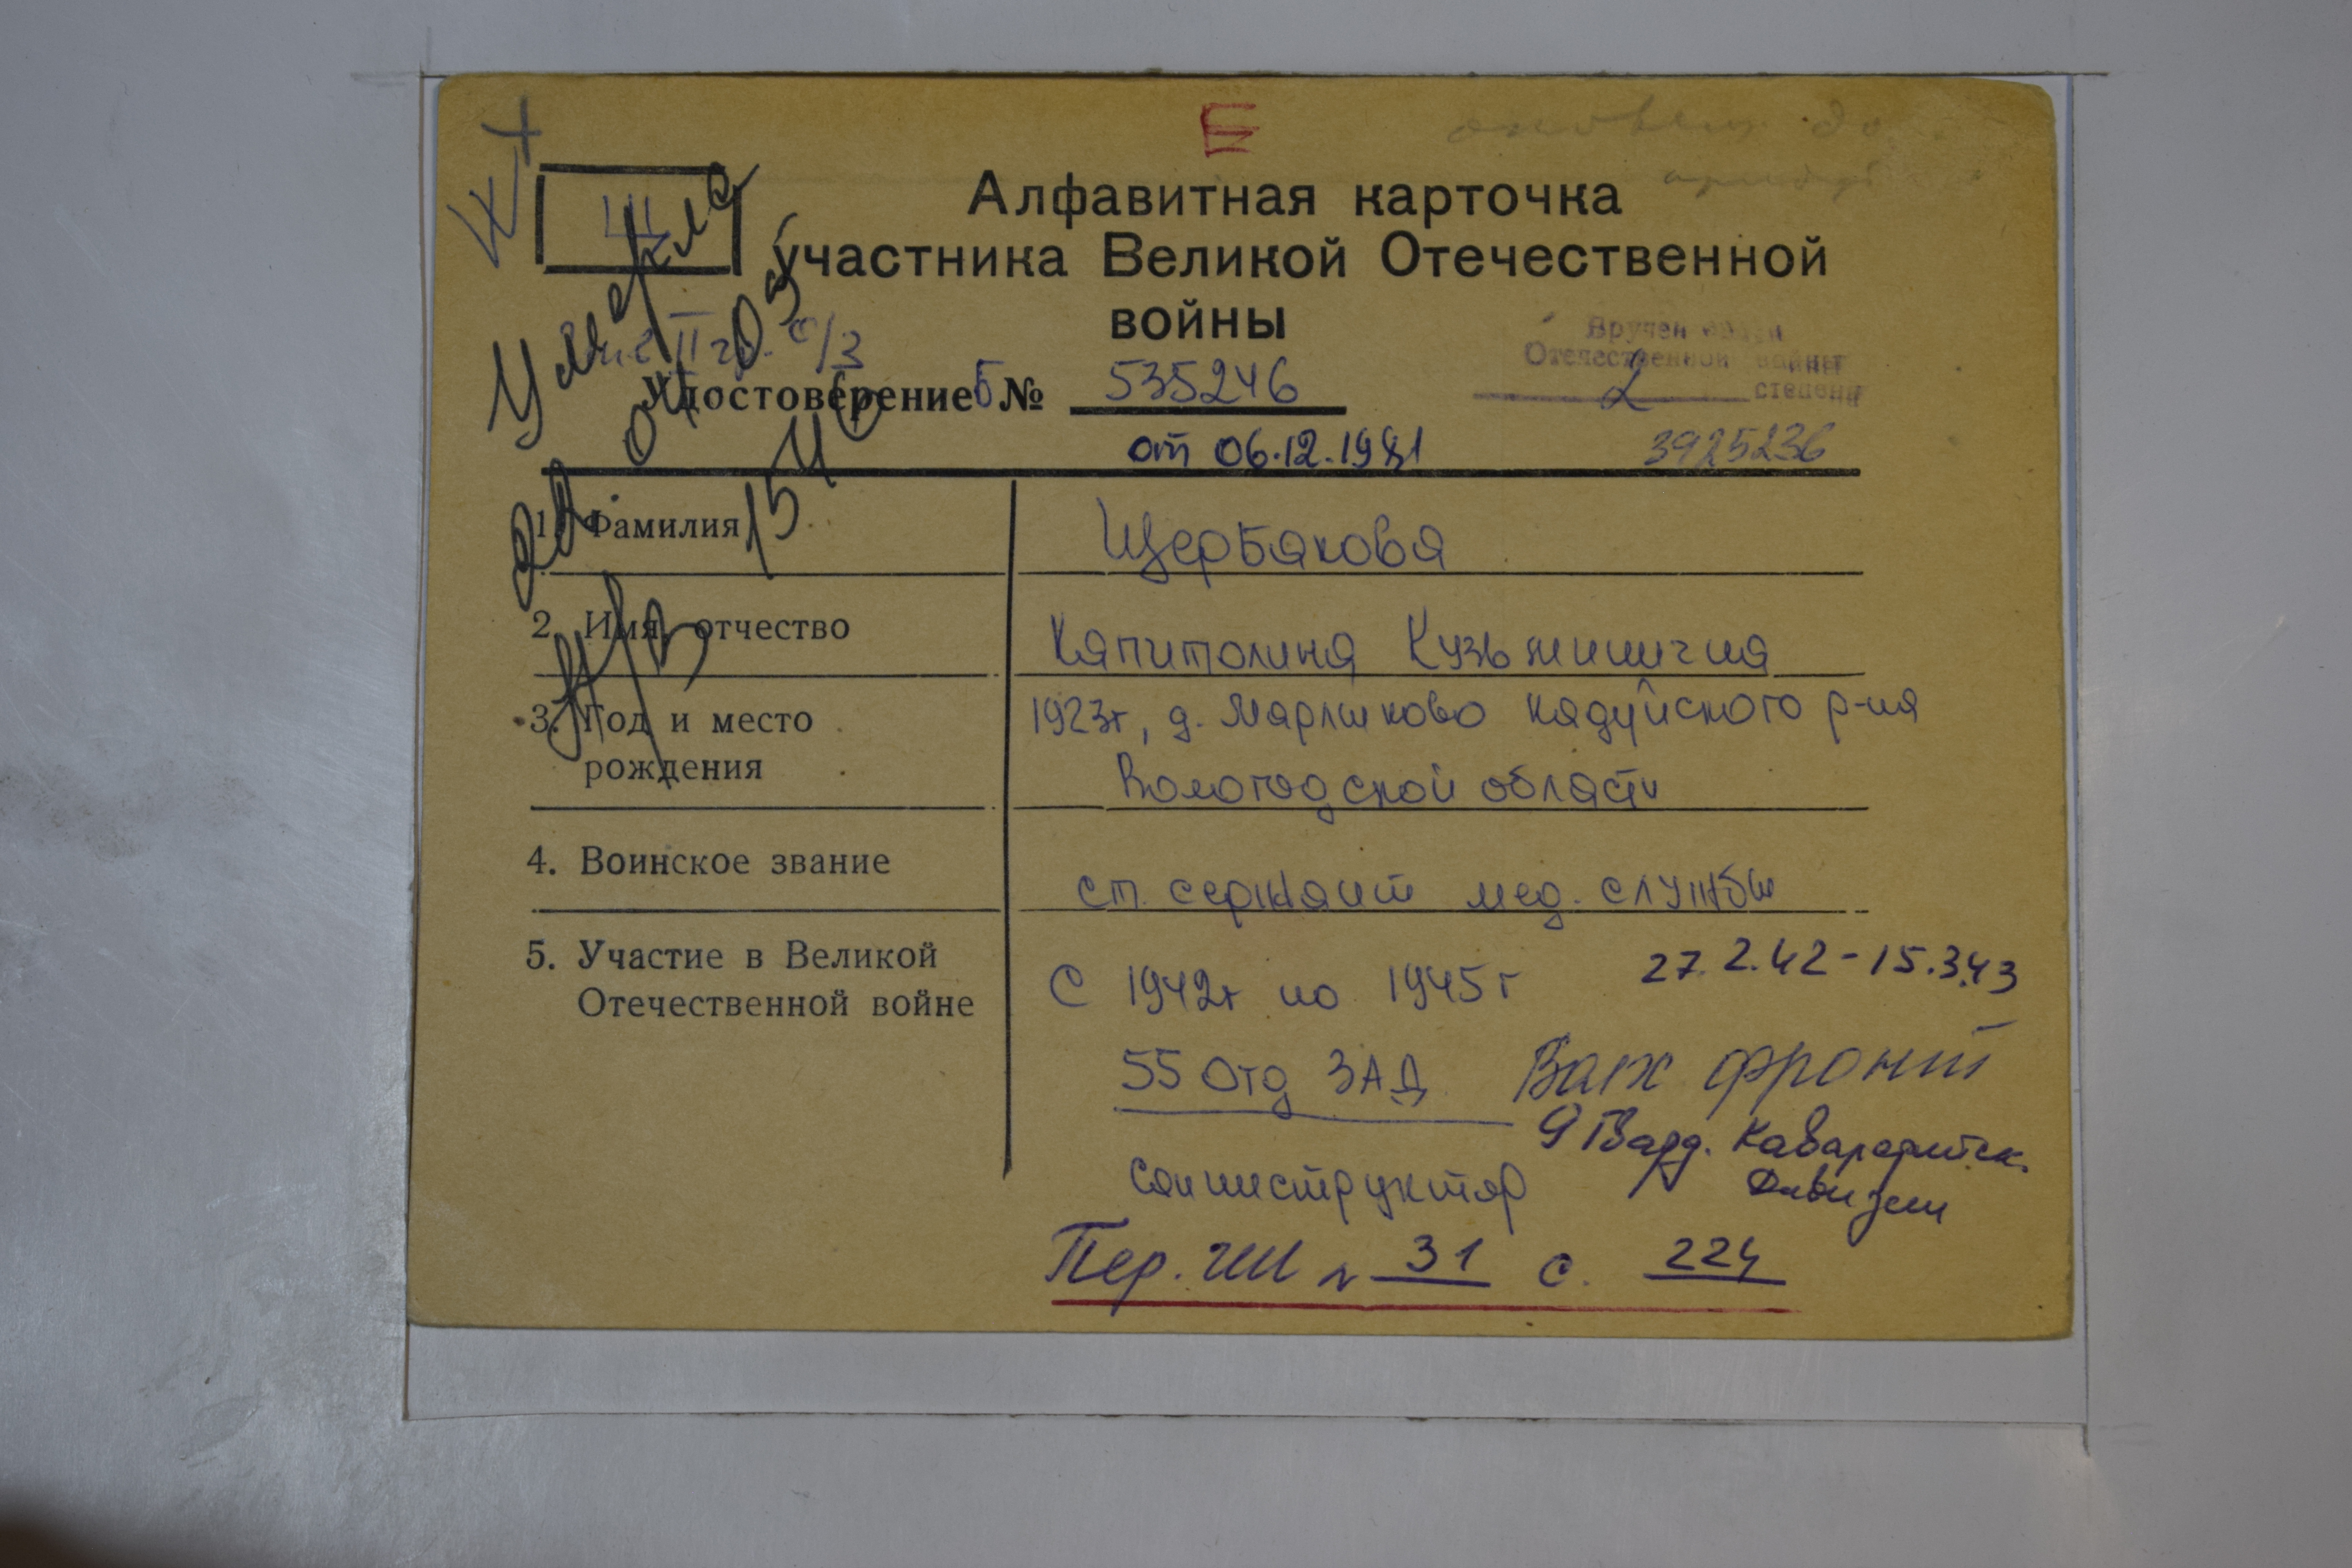 Ш
Щ
Алфавитная карточка
участника Великой Отечественной
войны
Умерла
Вручен орден
Отечественной войны
2 степени
Удостоверение Б № 535246
от 06.12.1981
3925236
1. Фамилия Щербакова
2. Имя, отчество Капитолина Кузьминична
3. Год и место рождения 1923г, д. Марыково Кадуйского р-на
Вологодской области
4. Воинское звание ст. сержант мед. службы
5. Участие в Великой
Отечественной войне
С 1942г по 1945г 27.2.42-15.3.43
55 Отд ЗАД Волх фронт
9 Гвард. Кавалерийск.
Дивизии
Санинструктор
Пер. ЧШ № 31 с. 224